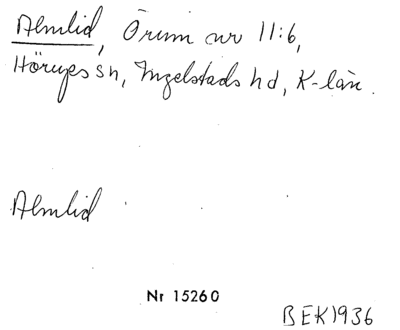 Almlid, Örum nr 11:6,
Hörups sn, Ingelstads hd, K-län.
Almlid
Nr 15260
BEK1936